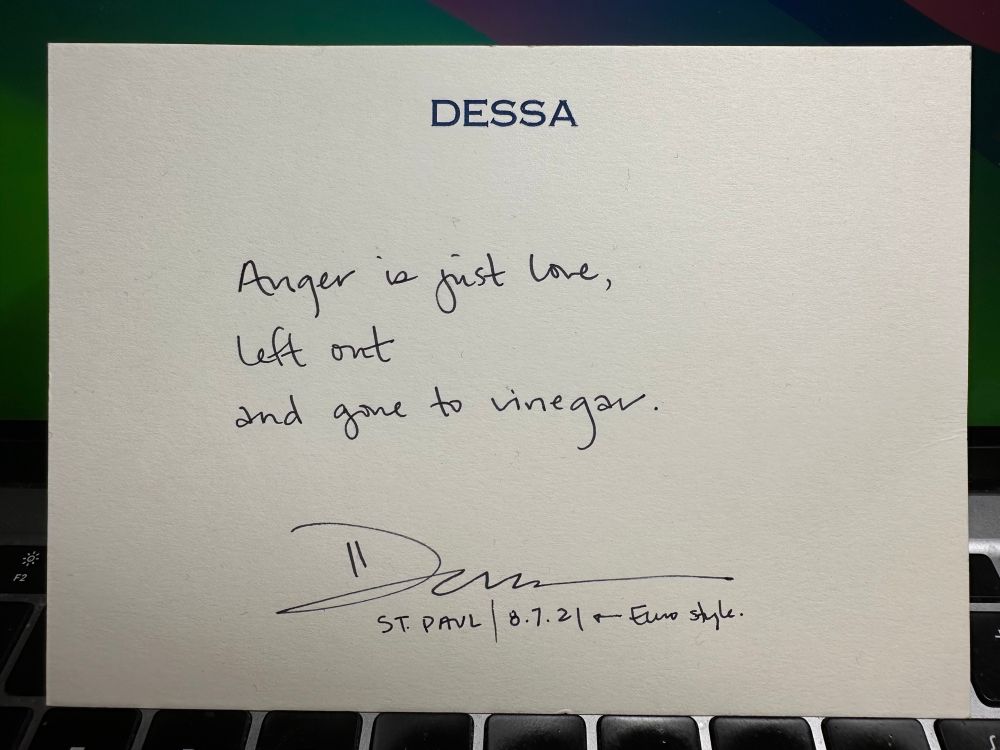 DESSA
Anger is just love,
left out
and gone to vinegar.
Dessa
ST. PAUL | 8.7.21 ← Euro style.
F2